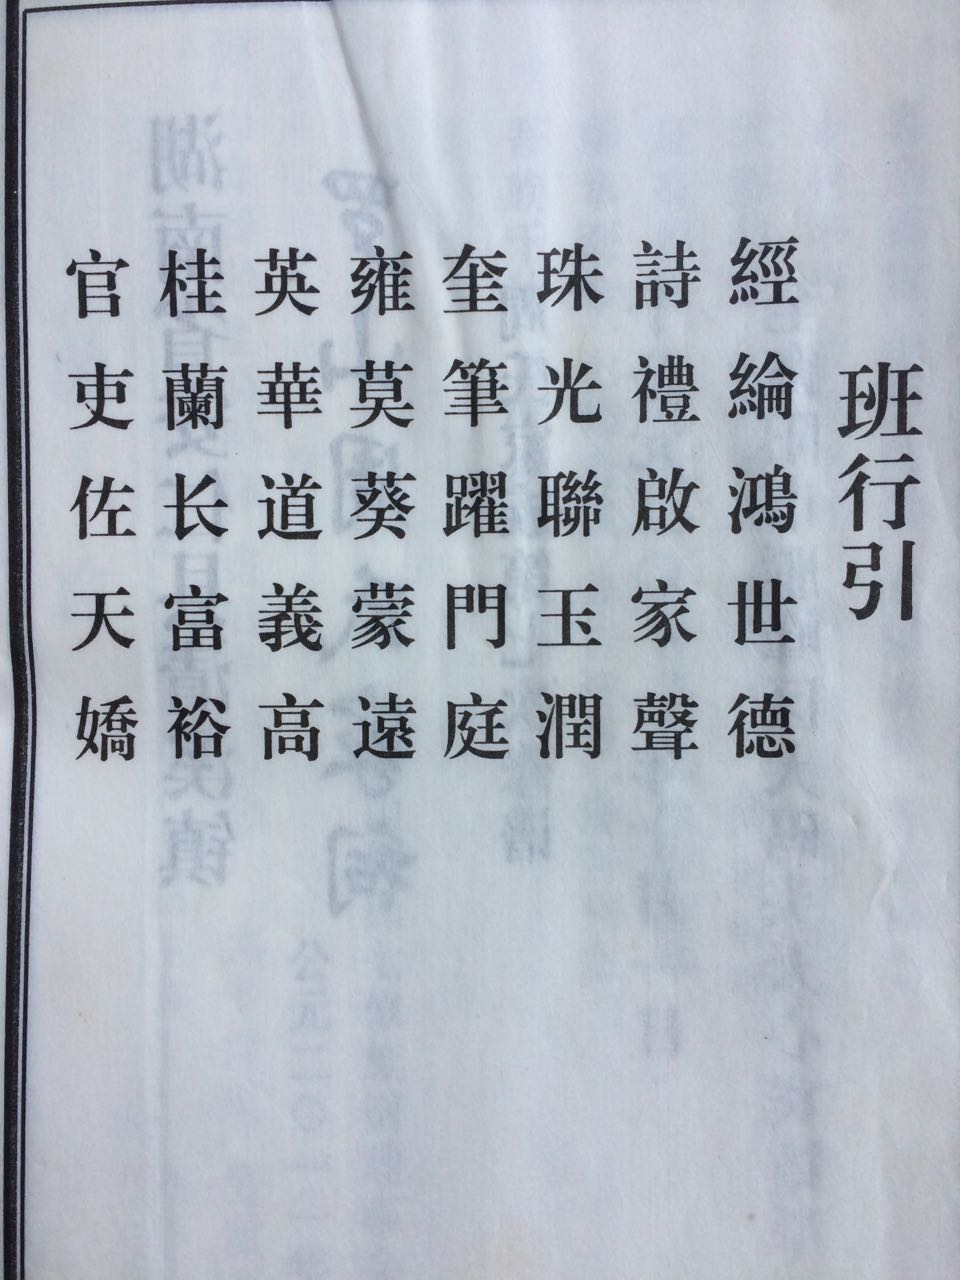 班行引
經綸鴻世德
詩禮啟家聲
珠光聯玉潤
奎筆躍門庭
雍莫葵蒙遠
英華道義高
桂蘭长富裕
官吏佐天嬌